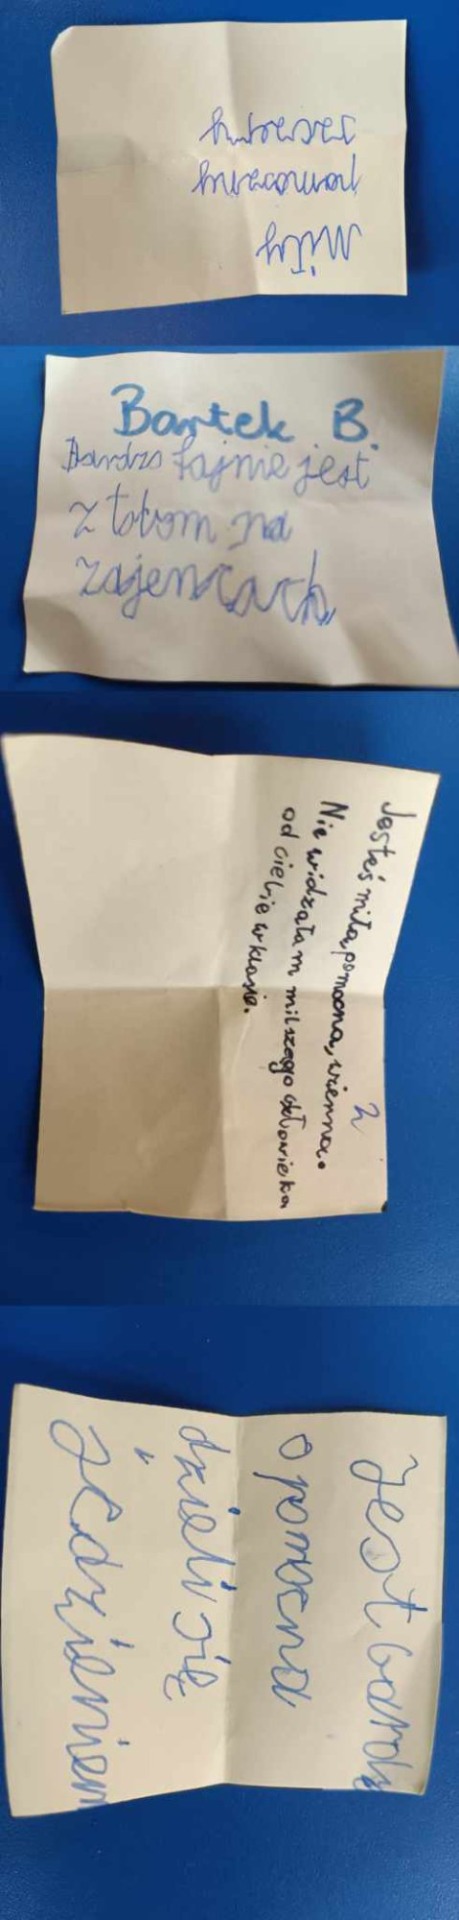 Miły
pomoczny
Bartek B.
Bardzo fajnie jest
z tobom na
zajencach
2
Jesteś miła, pomocna, wierna.
Nie widzałam milszego człowieka
od ciebie w klasie.
Jest bardz
o pomocna
dzieli się
jedzieniem